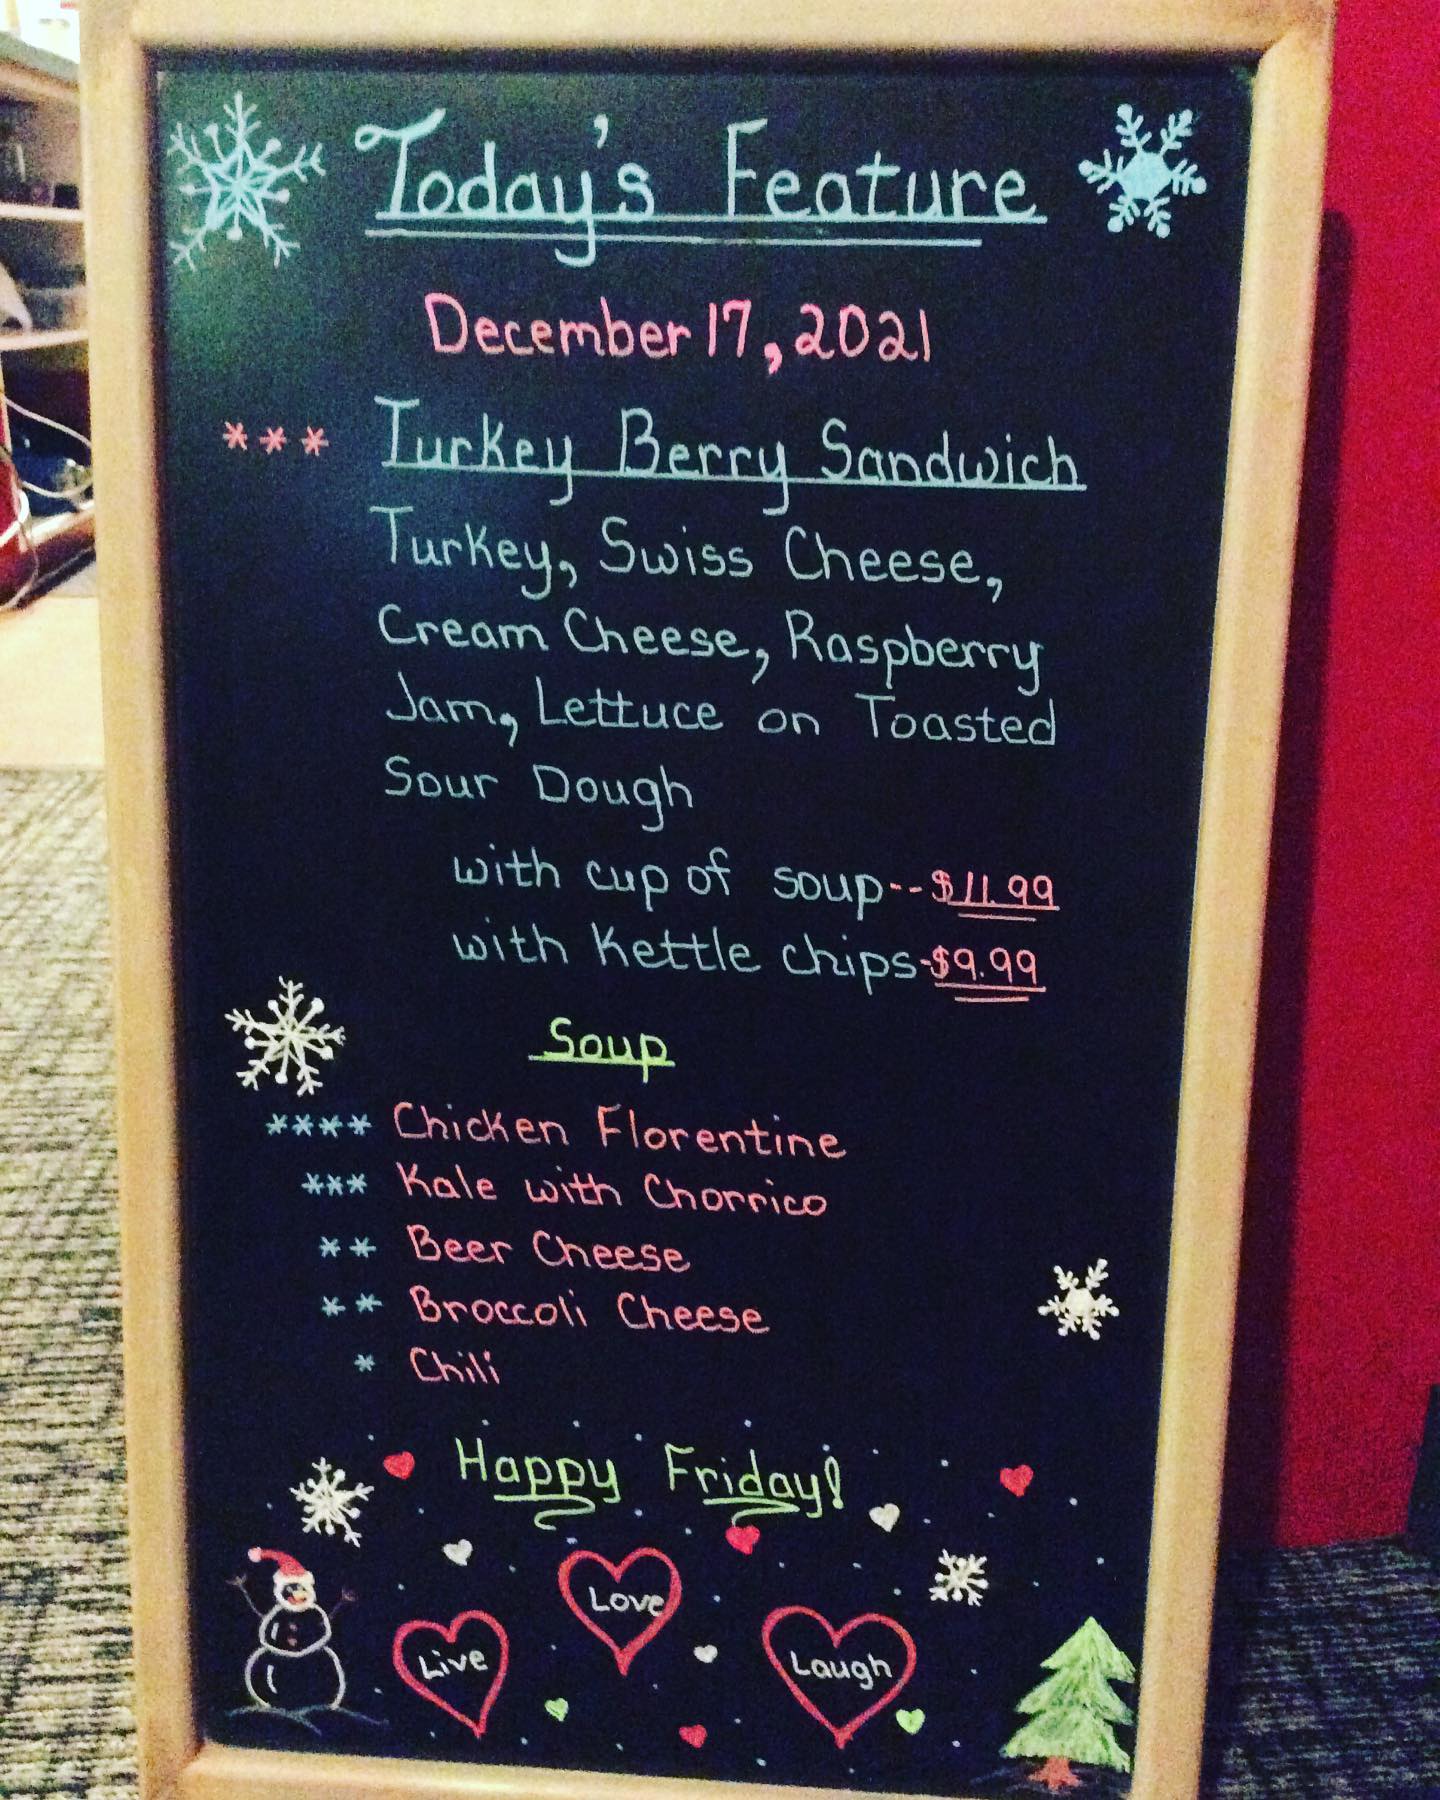 Today's Feature
December 17, 2021
*** Turkey Berry Sandwich
Turkey, Swiss Cheese,
Cream Cheese, Raspberry
Jam, Lettuce on Toasted
Sour Dough
with cup of soup--$11.99
with Kettle chips-$9.99
Soup
**** Chicken Florentine
*** Kale with Chorrico
** Beer Cheese
** Broccoli Cheese
* Chili
Happy Friday!
Live Love Laugh